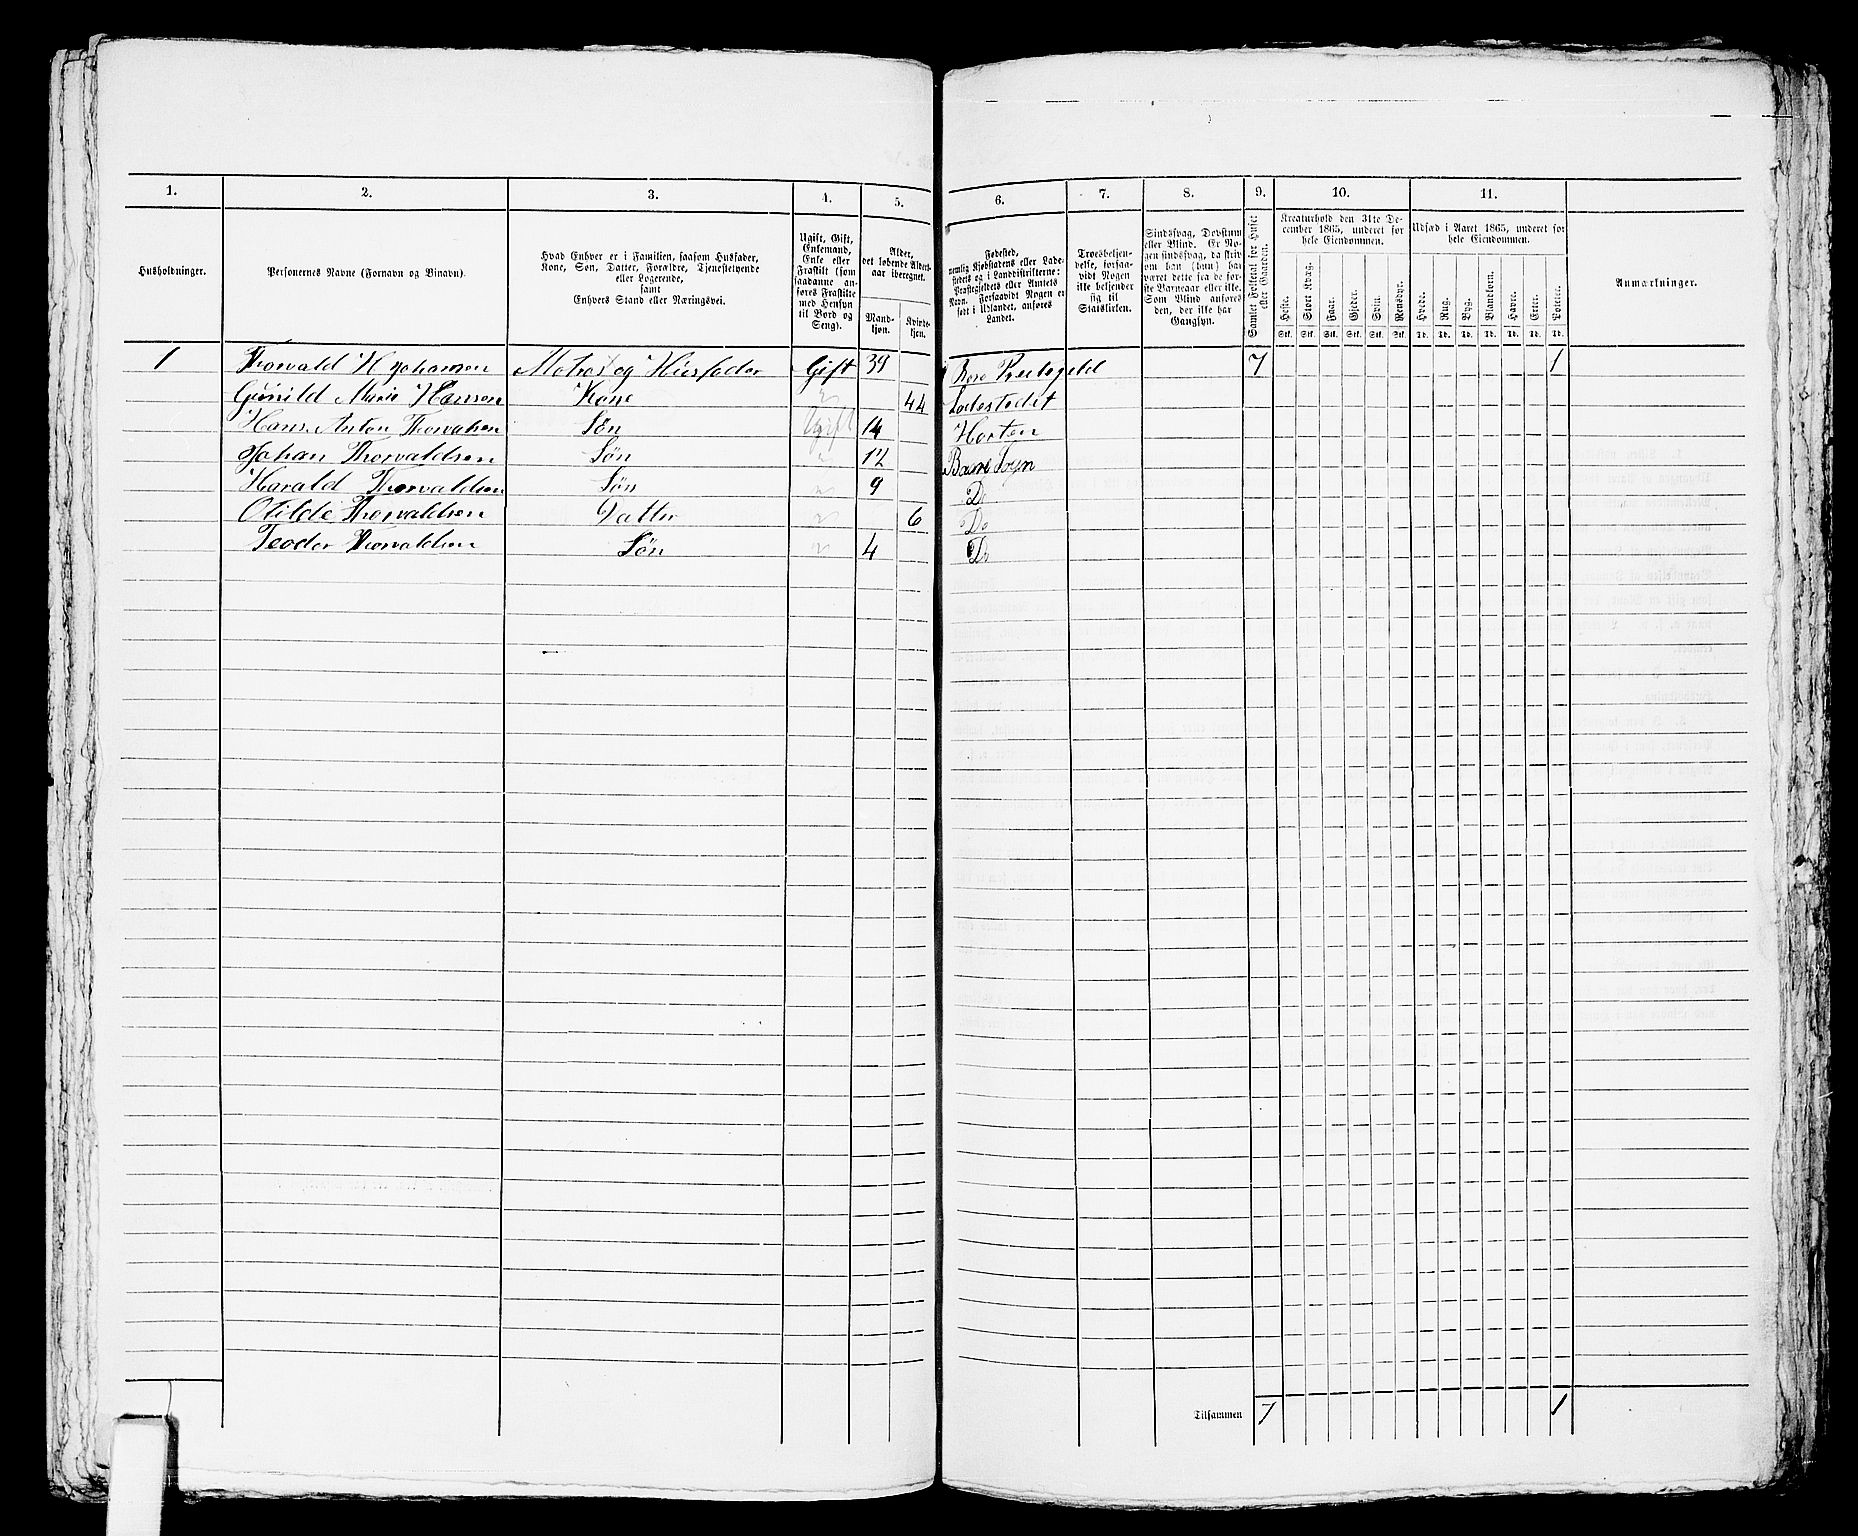 1. 2. 3. 4. 5. 6. 7. 8. 9. 10. 11.
Husholdninger.
Personernes Navne (Fornavn og Binavn).
Hvad Enhver er i Familien, saasom Husfader,
Kone, Søn, Datter, Forældre, Tjenestetyende
eller Logerende,
samt
Enhvers Stand eller Næringsvei.
Ugift, Gift,
Enkemand,
Enke eller
Fraskilt (som
saadanne an-
føres Fraskilte
med Hensyn
til Bord og
Seng).
Alder,
det løbende Alders-
aar iberegnet.
Mand-
kjøn.
Kvinde-
kjøn.
Fødested,
nemlig Kjøbstadens eller Lade-
stedets og i Landdistrikterne:
Præstegjeldets eller Amtets
Navn. Forsaavidt Nogen er
født i Udlandet, anføres
Landet.
Troesbekjen-
delse, forsaa-
vidt Nogen
ikke bekjender
sig til
Statskirken.
Sindssvag, Døvstum
eller Blind. Er No-
gen sindssvag, da skriv
om han (hun) har
været dette fra de før-
ste Barneaar eller ikke.
Som Blind anføres
den, der ikke har
Gangsyn.
Samlet Folketal for Huset
eller Gaarden.
Kreaturhold den 31te De-
cember 1865, underet for
hele Eiendommen.
Heste. Stort Kvæg. Faar. Gjeder. Svin. Rensdyr.
Stk. Stk. Stk. Stk. Stk. Stk.
Udsæd i Aaret 1865, underet for
hele Eiendommen.
Hvede. Rug. Byg. Blandkorn. Havre. Erter. Poteter.
Td. Td. Td. Td. Td. Td. Td.
Anmærkninger.
1 Thorvald H Johansen Matros og Husfader Gift 39 Præstegjeld 7 1
Gunild Marie Hansen Kone " 44 Ladestedet
Hans Anton Thorvalsen Søn Ugift 14 Horten
Johan Thorvaldsen Søn " 12
Harald Thorvaldsen Søn " 9 Do
Otilde Thorvaldsen Datter " 6 Do
Teodor Thorvaldsen Søn " 4 Do
Tilsammen 7 1